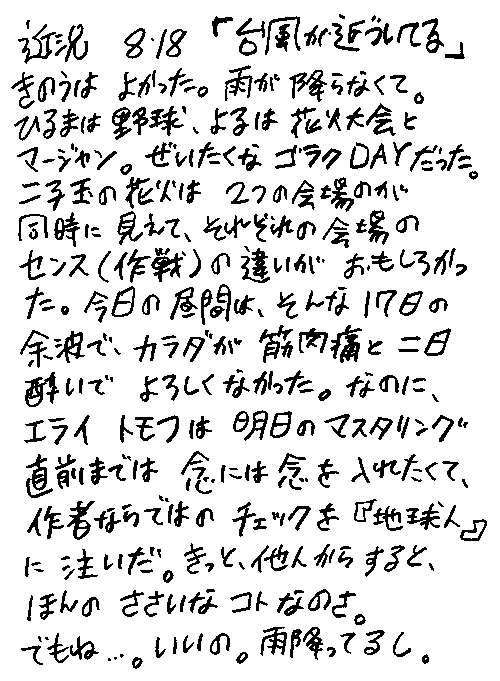 近況 8・18 「台風が近づいてる」
きのうは よかった。雨が降らなくて。
ひるまは 野球、よるは 花火大会と
マージャン。ぜいたくな ゴラクDAYだった。
二子玉の花火は 2つの会場のが
同時に見えて、それぞれの会場の
センス(作戦)の違いが おもしろかっ
た。今日の昼間は、そんな17日の
余波で、カラダが 筋肉痛と二日
酔いで よろしくなかった。なのに、
エライ トモフは 明日のマスタリング
直前までは 念には念を入れたくて、
作者ならではの チェックを『地球人』
に注いだ。きっと、他人からすると、
ほんの ささいな コトなのさ。
でもね…。いいの。雨降ってるし。